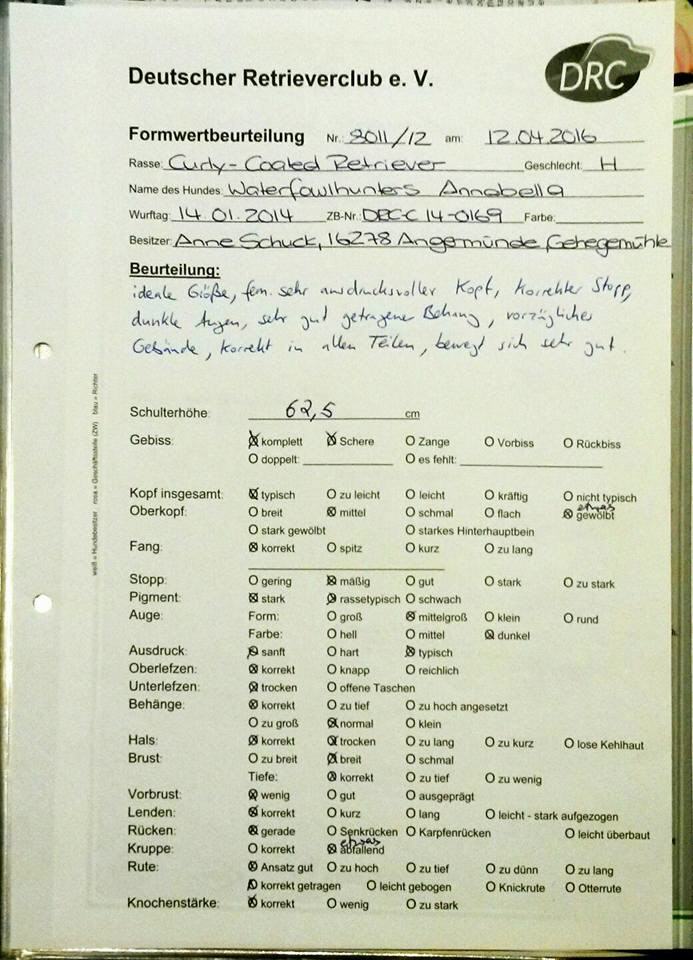 DRC
Deutscher Retrieverclub e. V.
Formwertbeurteilung Nr.: 8011/12 am: 12.04.2016
Rasse: Curly-Coated Retriever Geschlecht: H
Name des Hundes: Waterfowlhunters Annabella
Wurftag: 14.01.2014 ZB-Nr.: DRC-C 14-0169 Farbe:
Besitzer: Anne Schuck, 16278 Angermünde Gehegemühle
Beurteilung:
ideale Größe, fem. sehr ausdrucksvoller Kopf, korrekter Stopp,
dunkle Augen, sehr gut getragener Behang, vorzügliches
Gebäude, korrekt in allen Teilen, bewegt sich sehr gut.
weiß = Hundebesitzer rosa = Geschäftsstelle (ZW) blau = Richter
Schulterhöhe: 62,5 cm
Gebiss: komplett Schere Zange Vorbiss Rückbiss
doppelt: es fehlt:
Kopf insgesamt: typisch zu leicht leicht kräftig nicht typisch
Oberkopf: breit mittel schmal flach etwas gewölbt
stark gewölbt starkes Hinterhauptbein
Fang: korrekt spitz kurz zu lang
Stopp: gering mäßig gut stark zu stark
Pigment: stark rassetypisch schwach
Auge: Form: groß mittelgroß klein rund
Farbe: hell mittel dunkel
Ausdruck: sanft hart typisch
Oberlefzen: korrekt knapp reichlich
Unterlefzen: trocken offene Taschen
Behänge: korrekt zu tief zu hoch angesetzt
zu groß normal klein
Hals: korrekt trocken zu lang zu kurz lose Kehlhaut
Brust: zu breit breit schmal
Tiefe: korrekt zu tief zu wenig
Vorbrust: wenig gut ausgeprägt
Lenden: korrekt kurz lang leicht - stark aufgezogen
Rücken: gerade Senkrücken Karpfenrücken leicht überbaut
Kruppe: korrekt etwas abfallend
Rute: Ansatz gut zu hoch zu tief zu dünn zu lang
korrekt getragen leicht gebogen Knickrute Otterrute
Knochenstärke: korrekt wenig zu stark